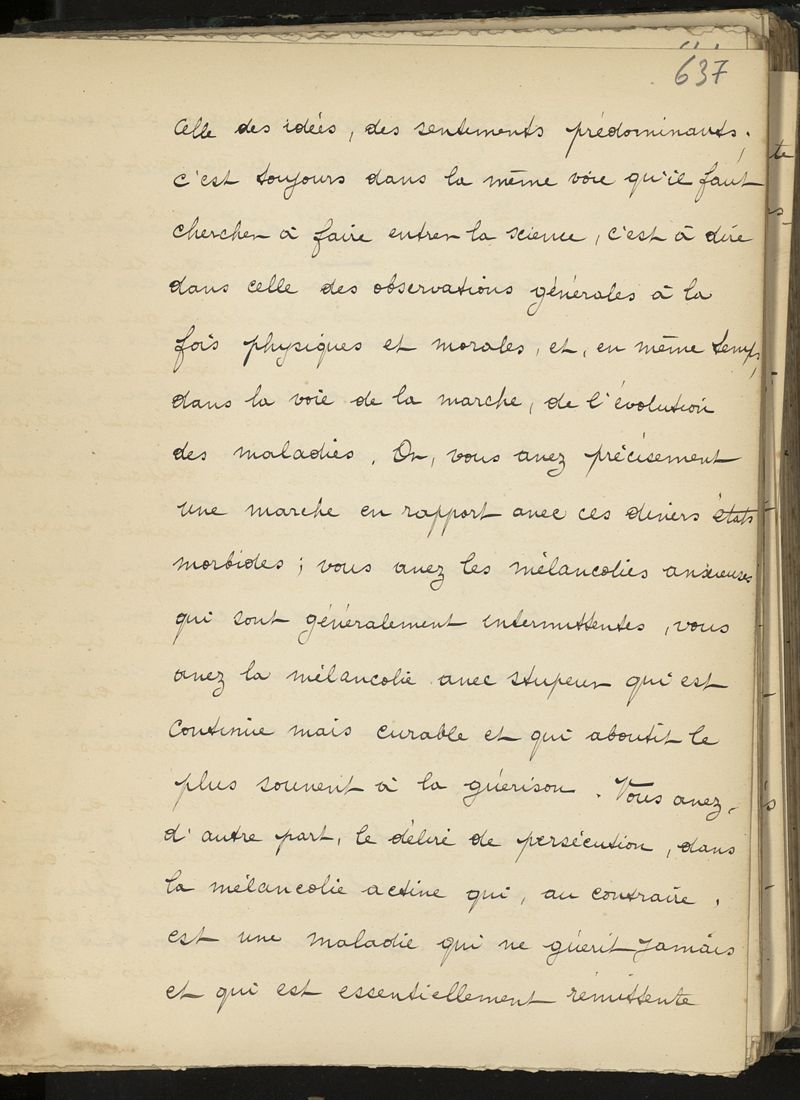 637
celle des idées, des sentiments prédominants,
c'est toujours dans la même voie qu'il faut
chercher à faire entrer la science, c'est à dire
dans celle des observations générales à la
fois physiques et morales, et, en même temps,
dans la voie de la marche, de l'évolution
des maladies. Or, vous avez précisément
une marche en rapport avec ces divers états
morbides ; vous avez les mélancolies anxieuses
qui sont généralement intermittentes, vous
avez la mélancolie avec stupeur qui est
continue mais curable et qui aboutit le
plus souvent à la guérison. Vous avez,
d'autre part, le délire de persécution, dans
la mélancolie active qui, au contraire,
est une maladie qui ne guérit jamais
et qui est essentiellement rémittente